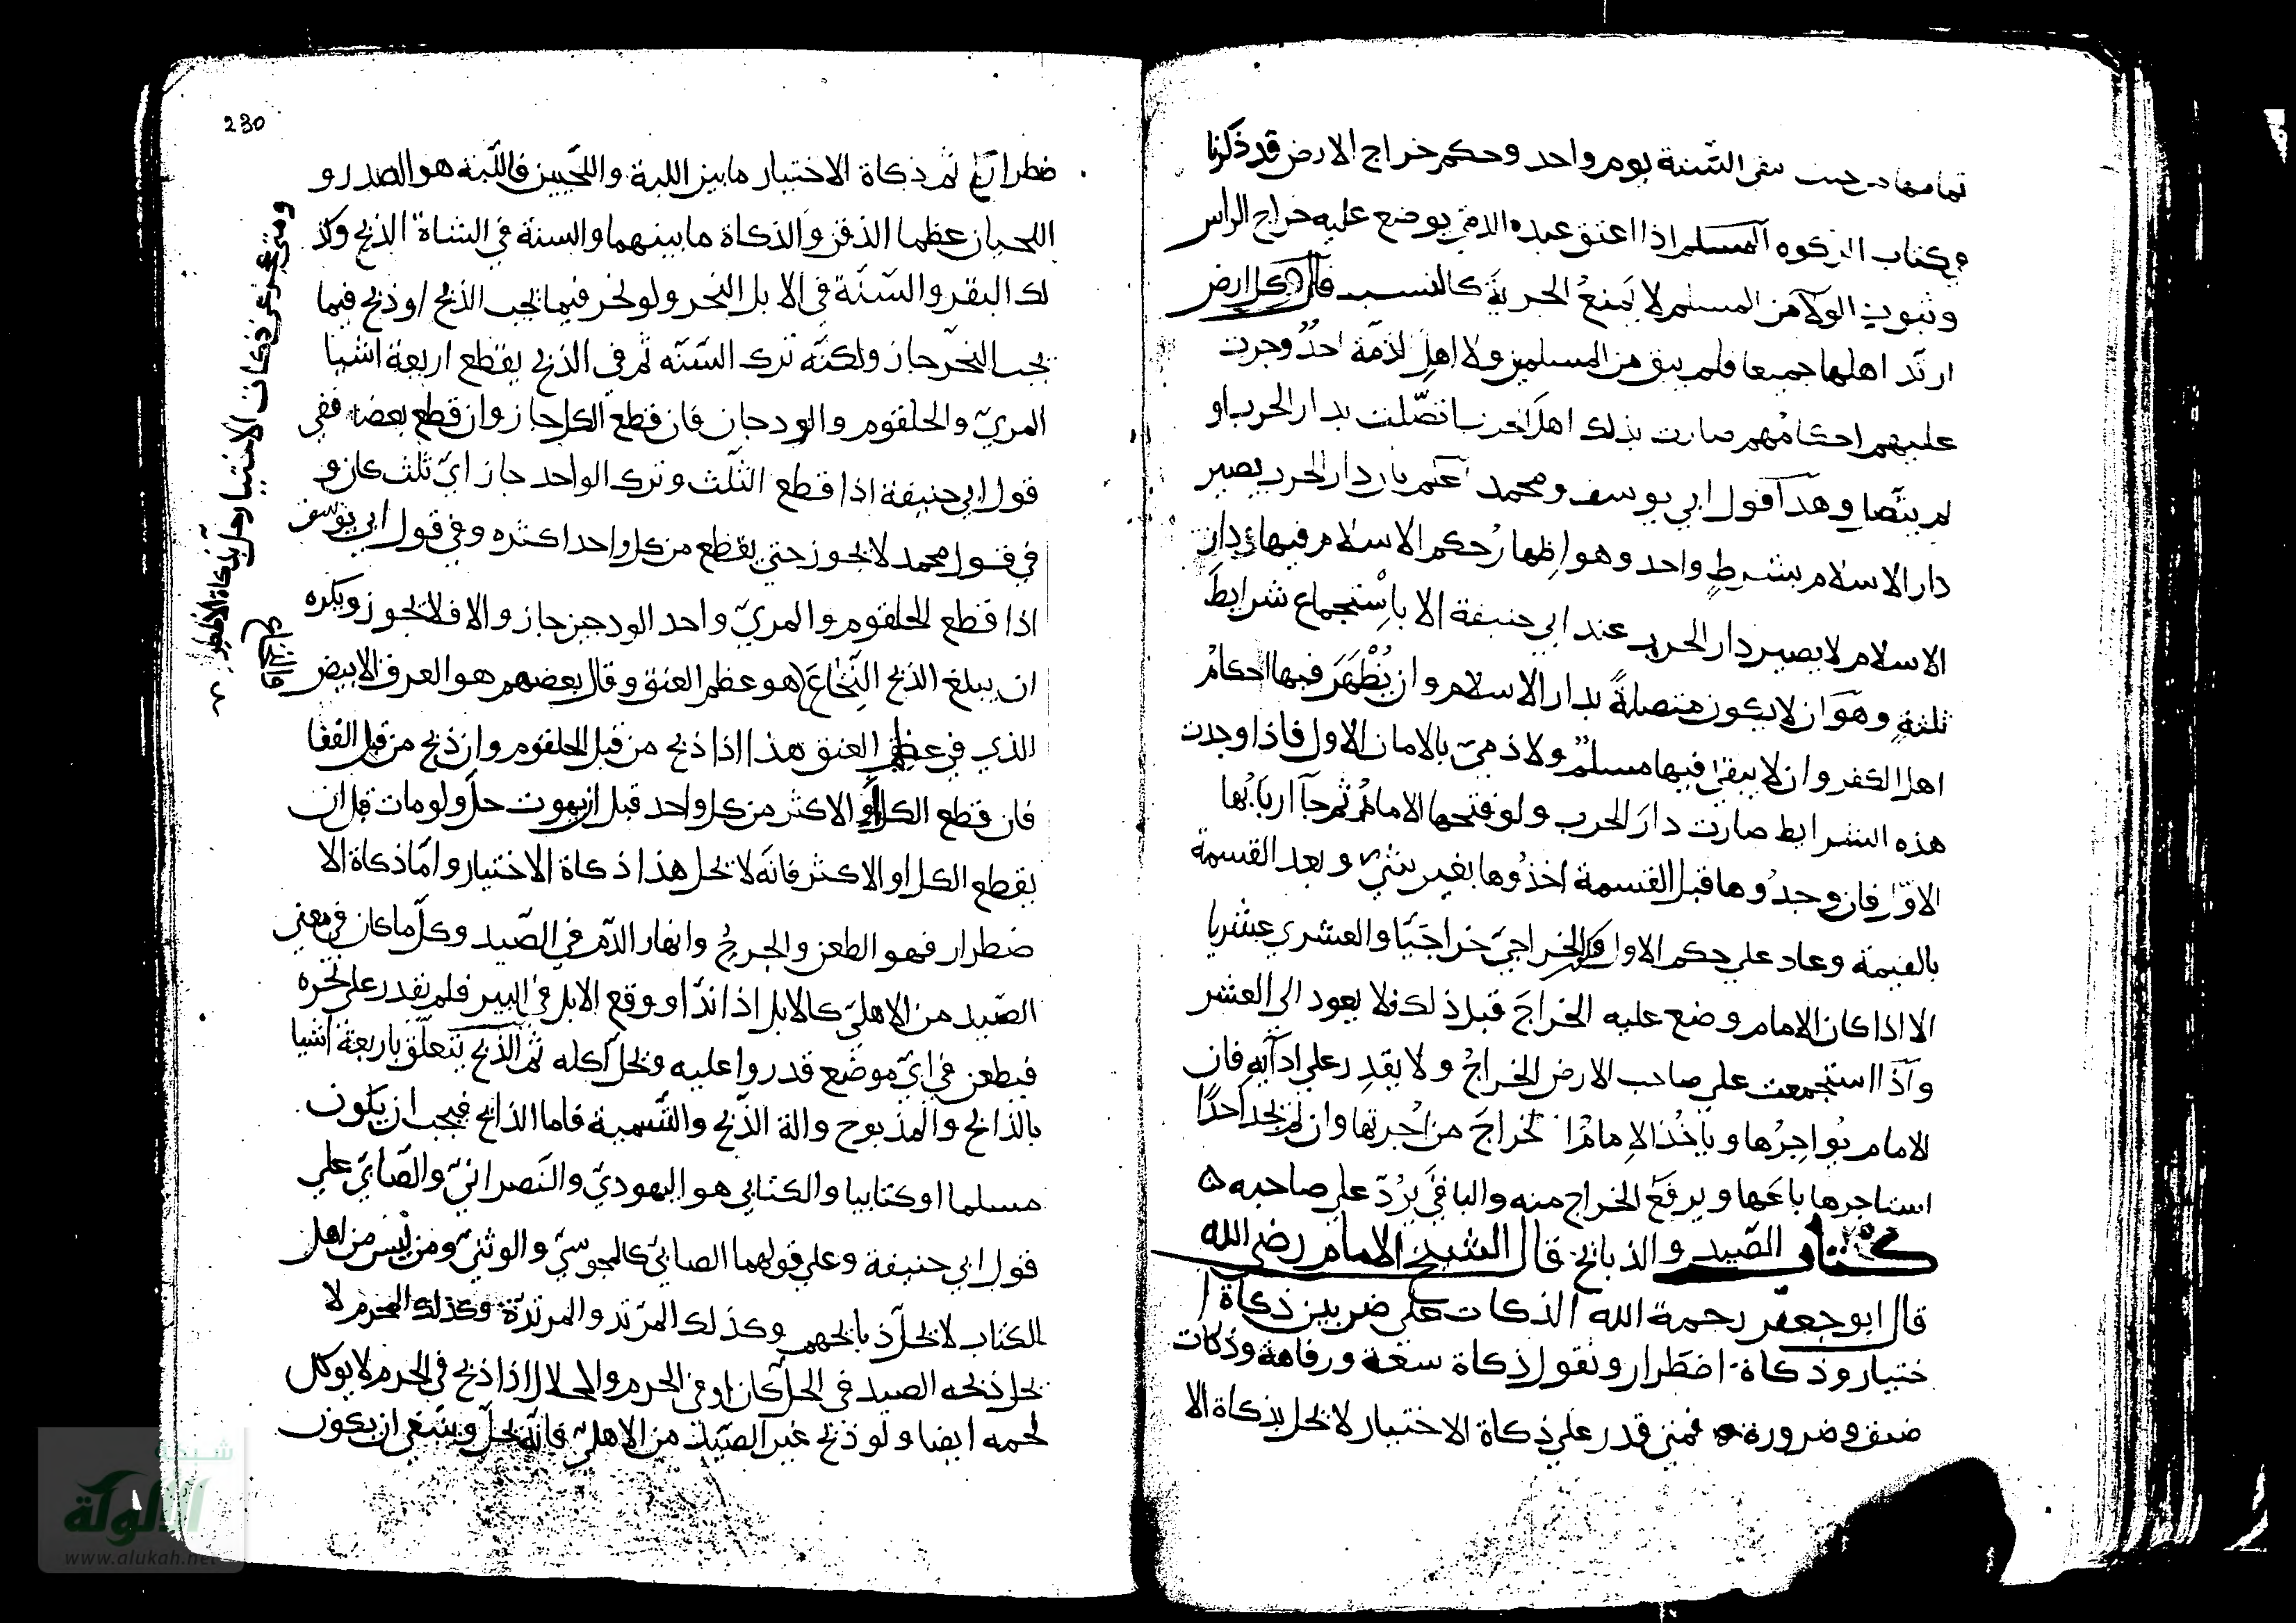 تمامها من حيث بقي السّنة يوم واحد وحكم خراج الارض قد ذكرنا
في كتاب الزكوه المسلم اذا اعتق عبده الذمي يوضع عليه خراج الراس
وثبوت الولآ من المسلم لا يَمنعُ الحرية كالنسب قال وكل ارض
ارتدّ اهلها جميعا فلم يبق من المسلمين ولا اهل الذمّة احدٌ وجرت
عليهم احكامُهم صارت بذلك اهلَ حرب اتصّلت بدار الحرب او
لم يتّصل وهذا قول ابي يوسف ومحمد اعلم بان دار الحرب يصير
دار الاسلام بشرطٍ واحد وهو اِظهارُ حكم الاسلام فيها ودار
الاسلام لا يصير دار الحرب عند ابي حنيفة الا باِسْتجماع شرايط
ثلثةٍ وهوَ ان لا يكون متصلةً بدار الاسلام وان يُظْهَرَ فيها احكامُ
اهل الكفر وان لا يبقى فيها مسلمٌ ولا ذميّ بالامان الاول فاذا وجدت
هذه الشرايط صارت دارَ الحرب ولو فتحها الامامُ ثم جآ اربابُها
الاوّل فان وجدُوها قبل القسمة اخذُوها بغير شيٍ وبعد القسمة
بالقيمة وعاد علي حكم الاول الخراجيّ خراجَيّا والعشري عشريا
الا اذا كان الامام وضع عليه الخراجَ قبل ذلك فلا يعود الى العشر
واذَا استجمعت علي صاحب الارض الخراجُ ولا يقدِر علي ادآيهِ فان
الامام يُواجِرُها وياخُذ الاِمامُ الخراجَ من اُجرتها وان لم يجد احدًا
استاجرها باعَها ويرفَعُ الخراج منه والباقي يَرُدّ علي صاحبه ٥
كتاب الصّيد والذبايح قال الشيخ الامام رضي الله
قال ابو جعفر رحمة الله الذكات علي ضربين ذكاة ا
ختيار وذكاة اضطرار ونقول ذكاة سعَة ورفاهة وذكات
ضيق وضرورة فمتي قدر علي ذكاة الاختيار لا تحل بذكاة الا
230
ضطرار ثم ذكاة الاختيار ما بين اللبة واللحّيين فاللّبة هو الصدر و
اللحيان عظما الذقن والذكاة ما بينهما والسنة في الشاة الذبح وكذ
لك البقر والسّنّة في الابل النحر ولو نحر فيما يجب الذبح او ذبح فيما
يجب النحر جاز ولكنّه ترك السّنّه ثم في الذبح يقطع اربعة اشيا
المريّ والحلقوم والودجان فان قطع الكل جاز وان قطع بعضه ففي
قول ابي حنيفة اذا قطع الثّلث وترك الواحد جاز ايّ ثلث كان و
في قول محمد لا يجوز حتي يقطع من كل واحد اكثره وفي قول ابي يوسف
اذا قطع الحلقوم والمريّ واحد الودجين جاز والا فلا يجوز ويكره
ان يبلغ الذبح النّخاعَ هو عظم العنق وقال بعضهم هو العرق الابيض
الذي في عظم العنق هذا اذا ذبح من قبل الحلقوم وان ذبح من قبل القفا
فان قطع الكل او الاكثر من كل واحد قبل ان يموت حلّ ولو مات قبل ان
يقطع الكل او الاكثر فانه لا تحل هذا ذكاة الاختيار وامّا ذكاة الا
ضطرار فهو الطعن والجرحُ وانهار الدّم في الصّيد وكلّ ما كان في معني
الصّيد من الاهليّ كالابل اذا ندّ او وقع الابل في البير فلم يقدر على نحره
فيطعن في ايّ موضع قدروا عليه ويحلّ اكله ثم الذّبح يتعلّق باربعة اشيا
بالذابح والمذبوح والة الذّبح والتّسمية فاما الذابح فيجب ان يكون
مسلما او كتابيا والكتابي هو اليهوديّ والنّصرانيّ والصّابيّ علي
قول ابي حنيفة وعلي قولهما الصابيّ كالمجوسيّ والوثنيّ ومن ليس من اهل
الكتاب لا تحلّ ذبايحهم وكذلك المرتد والمرتدّة وكذلك المحرم لا
يحل ذبحه الصيد في الحلّ كان او في الحرم والحلال اذا ذبح في الحرم لا يوكل
لحمه ايضا ولو ذبح غير الصّيد من الاهليّ فانّه يحلّ وينبغي ان يكون
ومتي عجز عن ذكات الاختيار حل بذكاة الاضطرار
شبكة
الألوكة
www.alukah.net